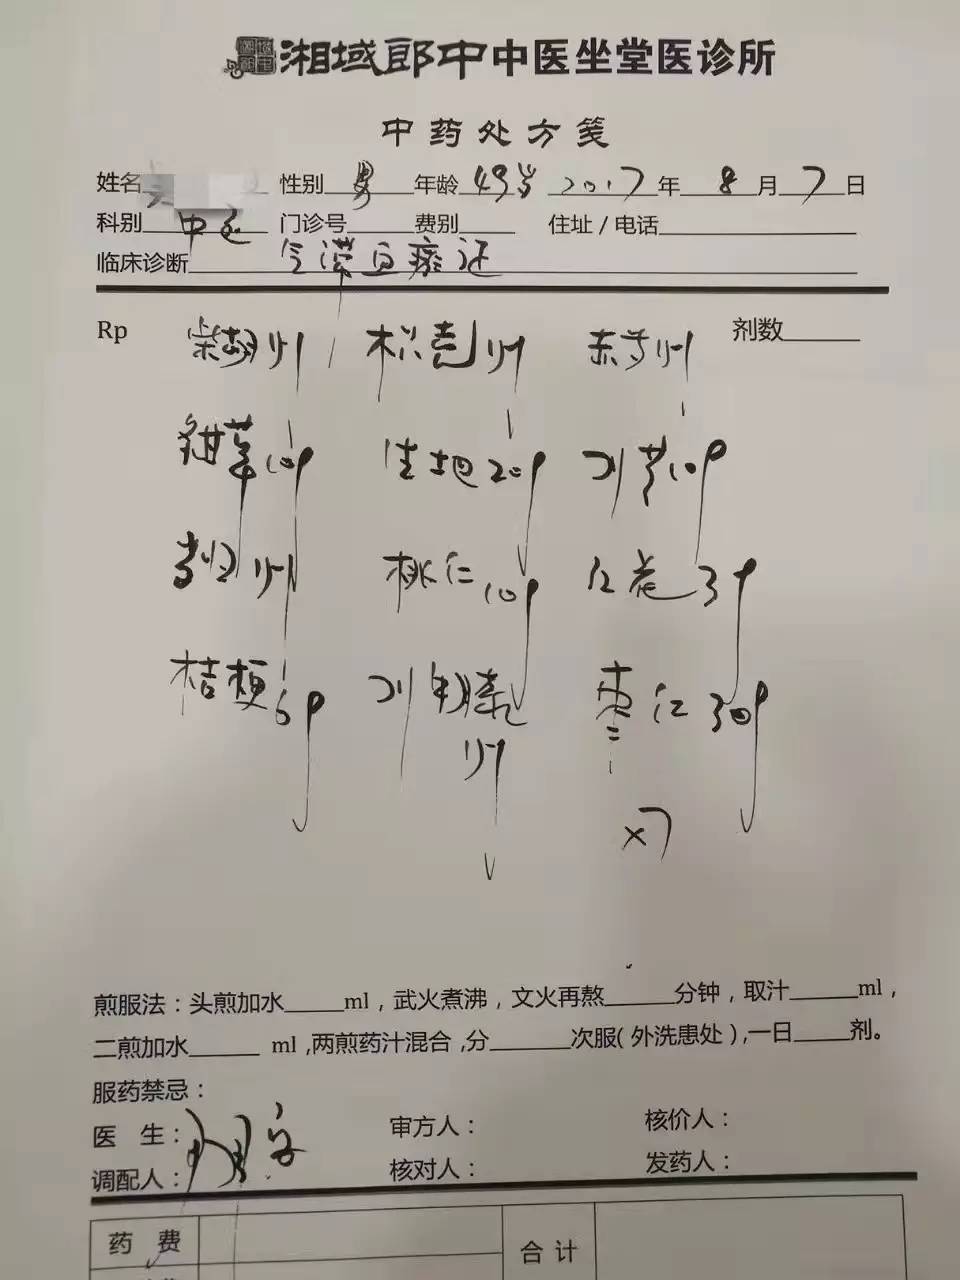 湘域郎中中医坐堂医诊所
中药处方笺
姓名 性别 男 年龄 49岁 2017年 8月 7日
科别 中医 门诊号 费别 住址/电话
临床诊断 气滞血瘀证
Rp 剂数
柴胡 枳壳 赤芍
甘草10g 生地20g 川芎10g
当归 桃仁10g 红花3g
桔梗6g 川牛膝 枣仁30g
×7
煎服法：头煎加水 ml，武火煮沸，文火再熬 分钟，取汁 ml，
二煎加水 ml,两煎药汁混合,分 次服(外洗患处),一日 剂。
服药禁忌：
医 生： 审方人： 核价人：
调配人： 核对人： 发药人：
药 费 合 计